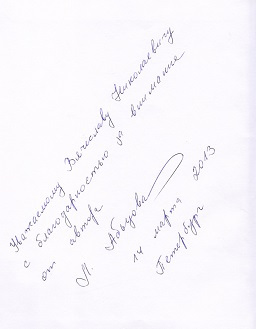 Уважаемому Вячеславу Николаевичу
с благодарностью за внимание
от автора
М. Абызова
14 марта 2013
Петербург